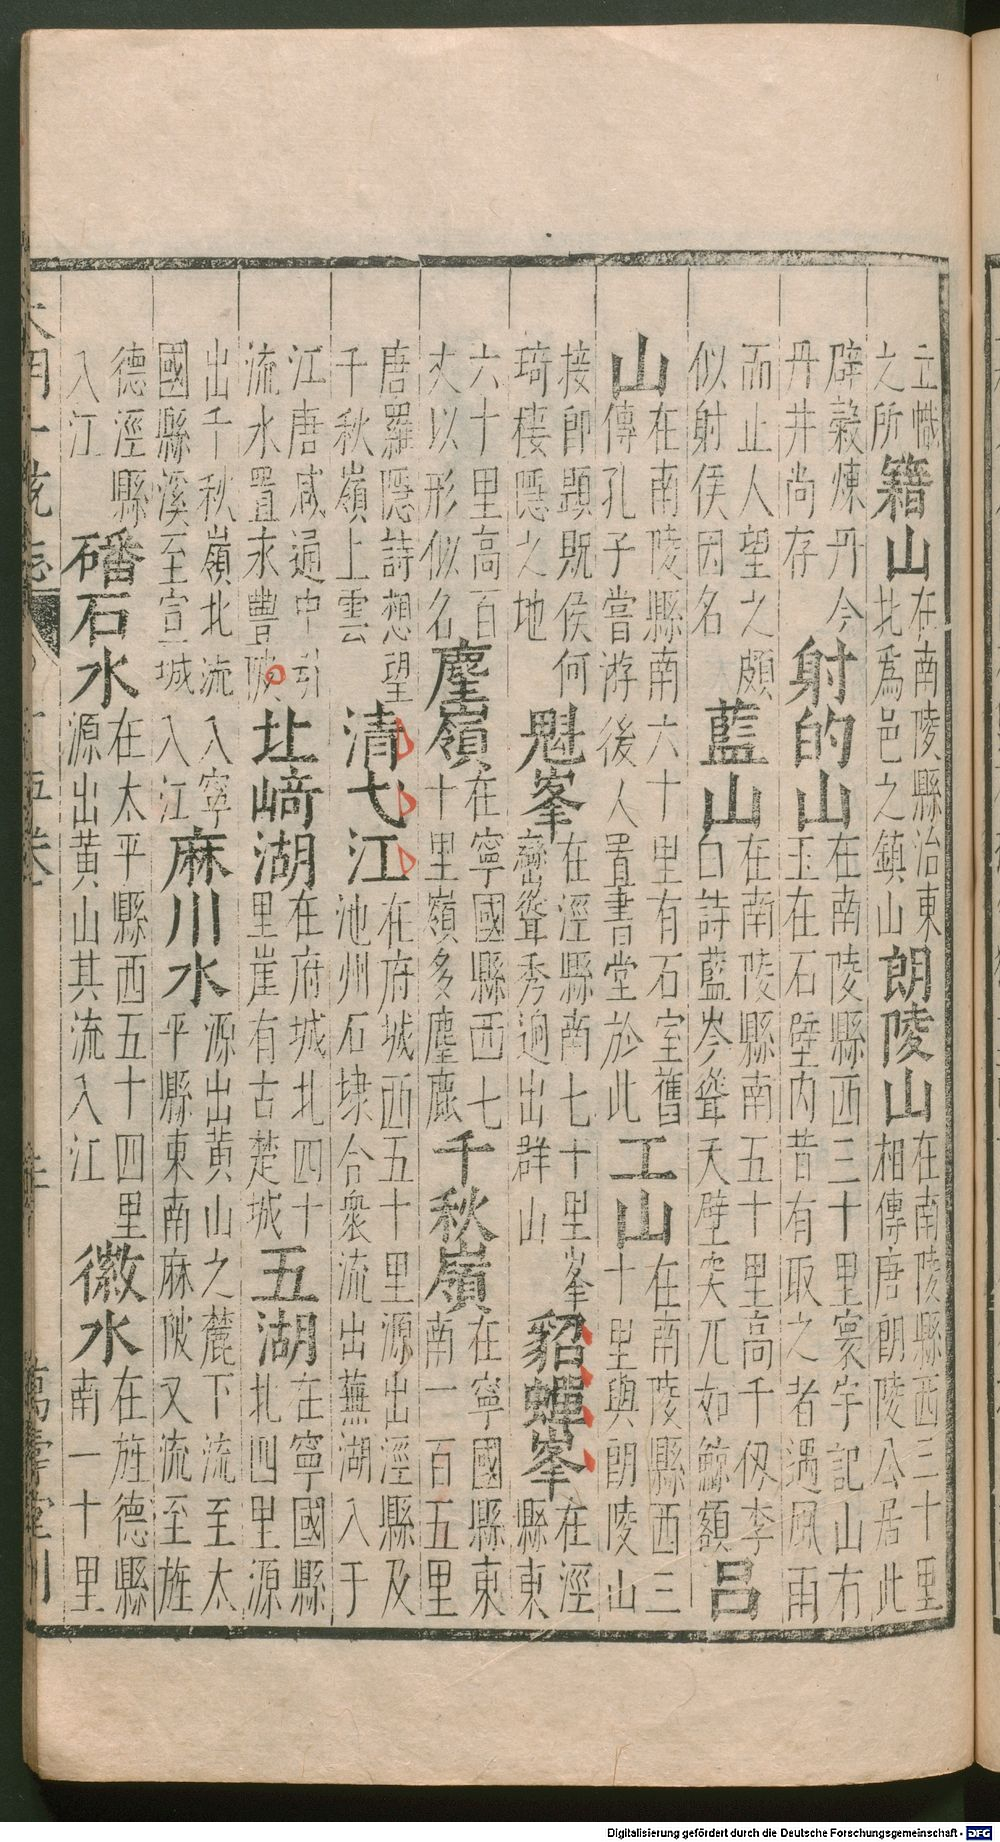 立幟之所籍山在南陵縣治東北爲邑之鎮山朗陵山在南陵縣西三十里相傳唐朗陵公居此
辟穀煉丹今丹井尚存射的山在南陵縣西三十里寰宇記山右玉在石壁内昔有取之者遇風雨
而止人望之頗似射侯因名藍山在南陵縣南五十里高千仭李白詩藍岑聳天壁突兀如鯨額呂
山在南陵縣南六十里有石室舊傳孔子嘗游後人置書堂於此工山在南陵縣西三十里與朗陵山
接即顕既侯何琦棲隱之地魁峯在涇縣南七十里峯巒聳秀逈出群山貂蟬峯在涇縣東
六十里高百丈以形似名麈嶺在寧國縣西七十里嶺多麈麃千秋嶺在寧國縣東南一百五里
唐羅隱詩想望千秋嶺上雲清弋江在府城西五十里源出涇縣及池州石埭合衆流出蕪湖入于
江唐咸通中引流水置永豐陂北﨑湖在府城北四十里崖有古楚城五湖在寧國縣北四里源
出千秋嶺北流入寧國縣溪至宣城入江麻川水源出黄山之麓下流至太平縣東南麻陂又流至旌
德涇縣入江磻石水在太平縣西五十四里源出黄山其流入江徽水在旌德縣南一十里
大明一統志 十五卷 萬壽堂刊
Digitalisierung gefördert durch die Deutsche Forschungsgemeinschaft - DFG